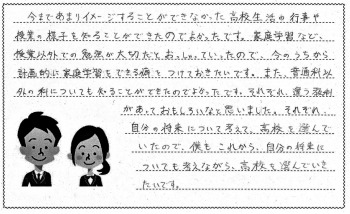 今まであまりイメージすることができなかった高校生活の行事や
授業の様子を知ることができたのでよかったです。家庭学習など、
授業以外での勉強が大切だとおっしゃっていたので、今のうちから
計画的に家庭学習をできる癖をつけておきたいです。また、普通科以
外の科についても知ることができたのでよかったです。それぞれ、違う強み
があっておもしろいなと思いました。それぞれ、
自分の将来について考えて、高校を選んで
いたので、僕もこれから、自分の将来に
ついても考えながら、高校を選んでいき
たいです。